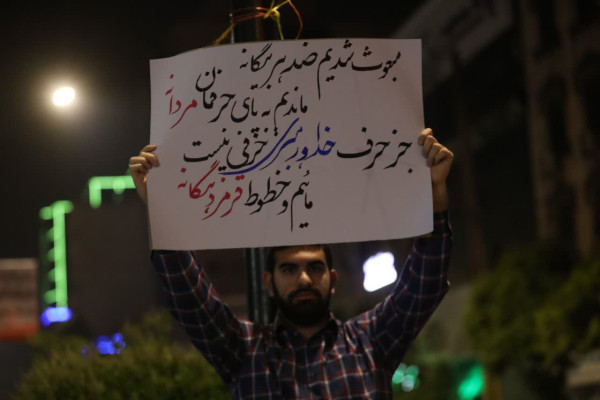 مبعوث شدیم ضد هر بیگانه
ماندیم به پای حرفمان مردانه
جز حرف خدا و رهبری حرفی نیست
مائیم و خطوط قرمز ده‌گانه